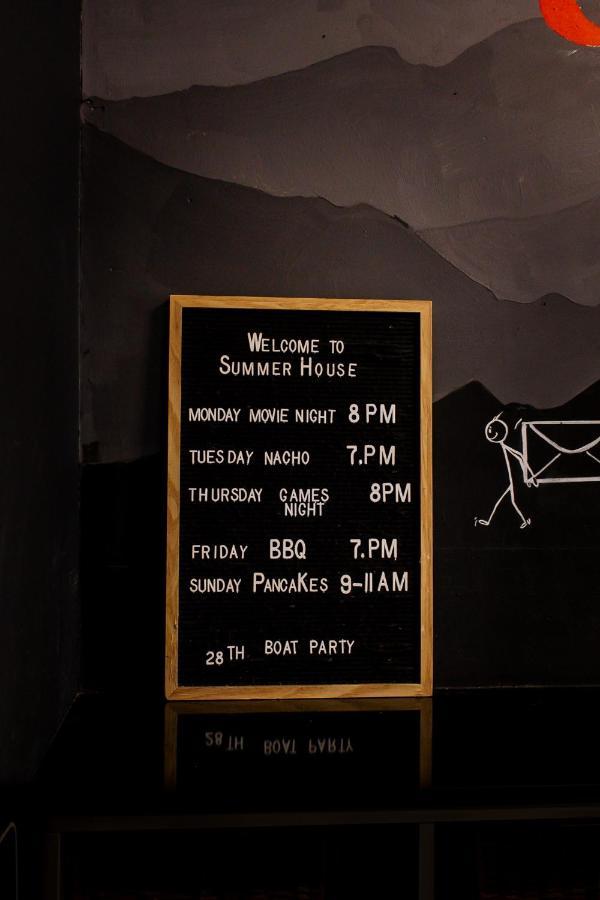 WELCOME TO
SUMMER HOUSE
MONDAY MOVIE NIGHT 8 PM
TUESDAY NACHO 7.PM
THURSDAY GAMES 8PM
NIGHT
FRIDAY BBQ 7.PM
SUNDAY PANCAKES 9-11 AM
28TH BOAT PARTY